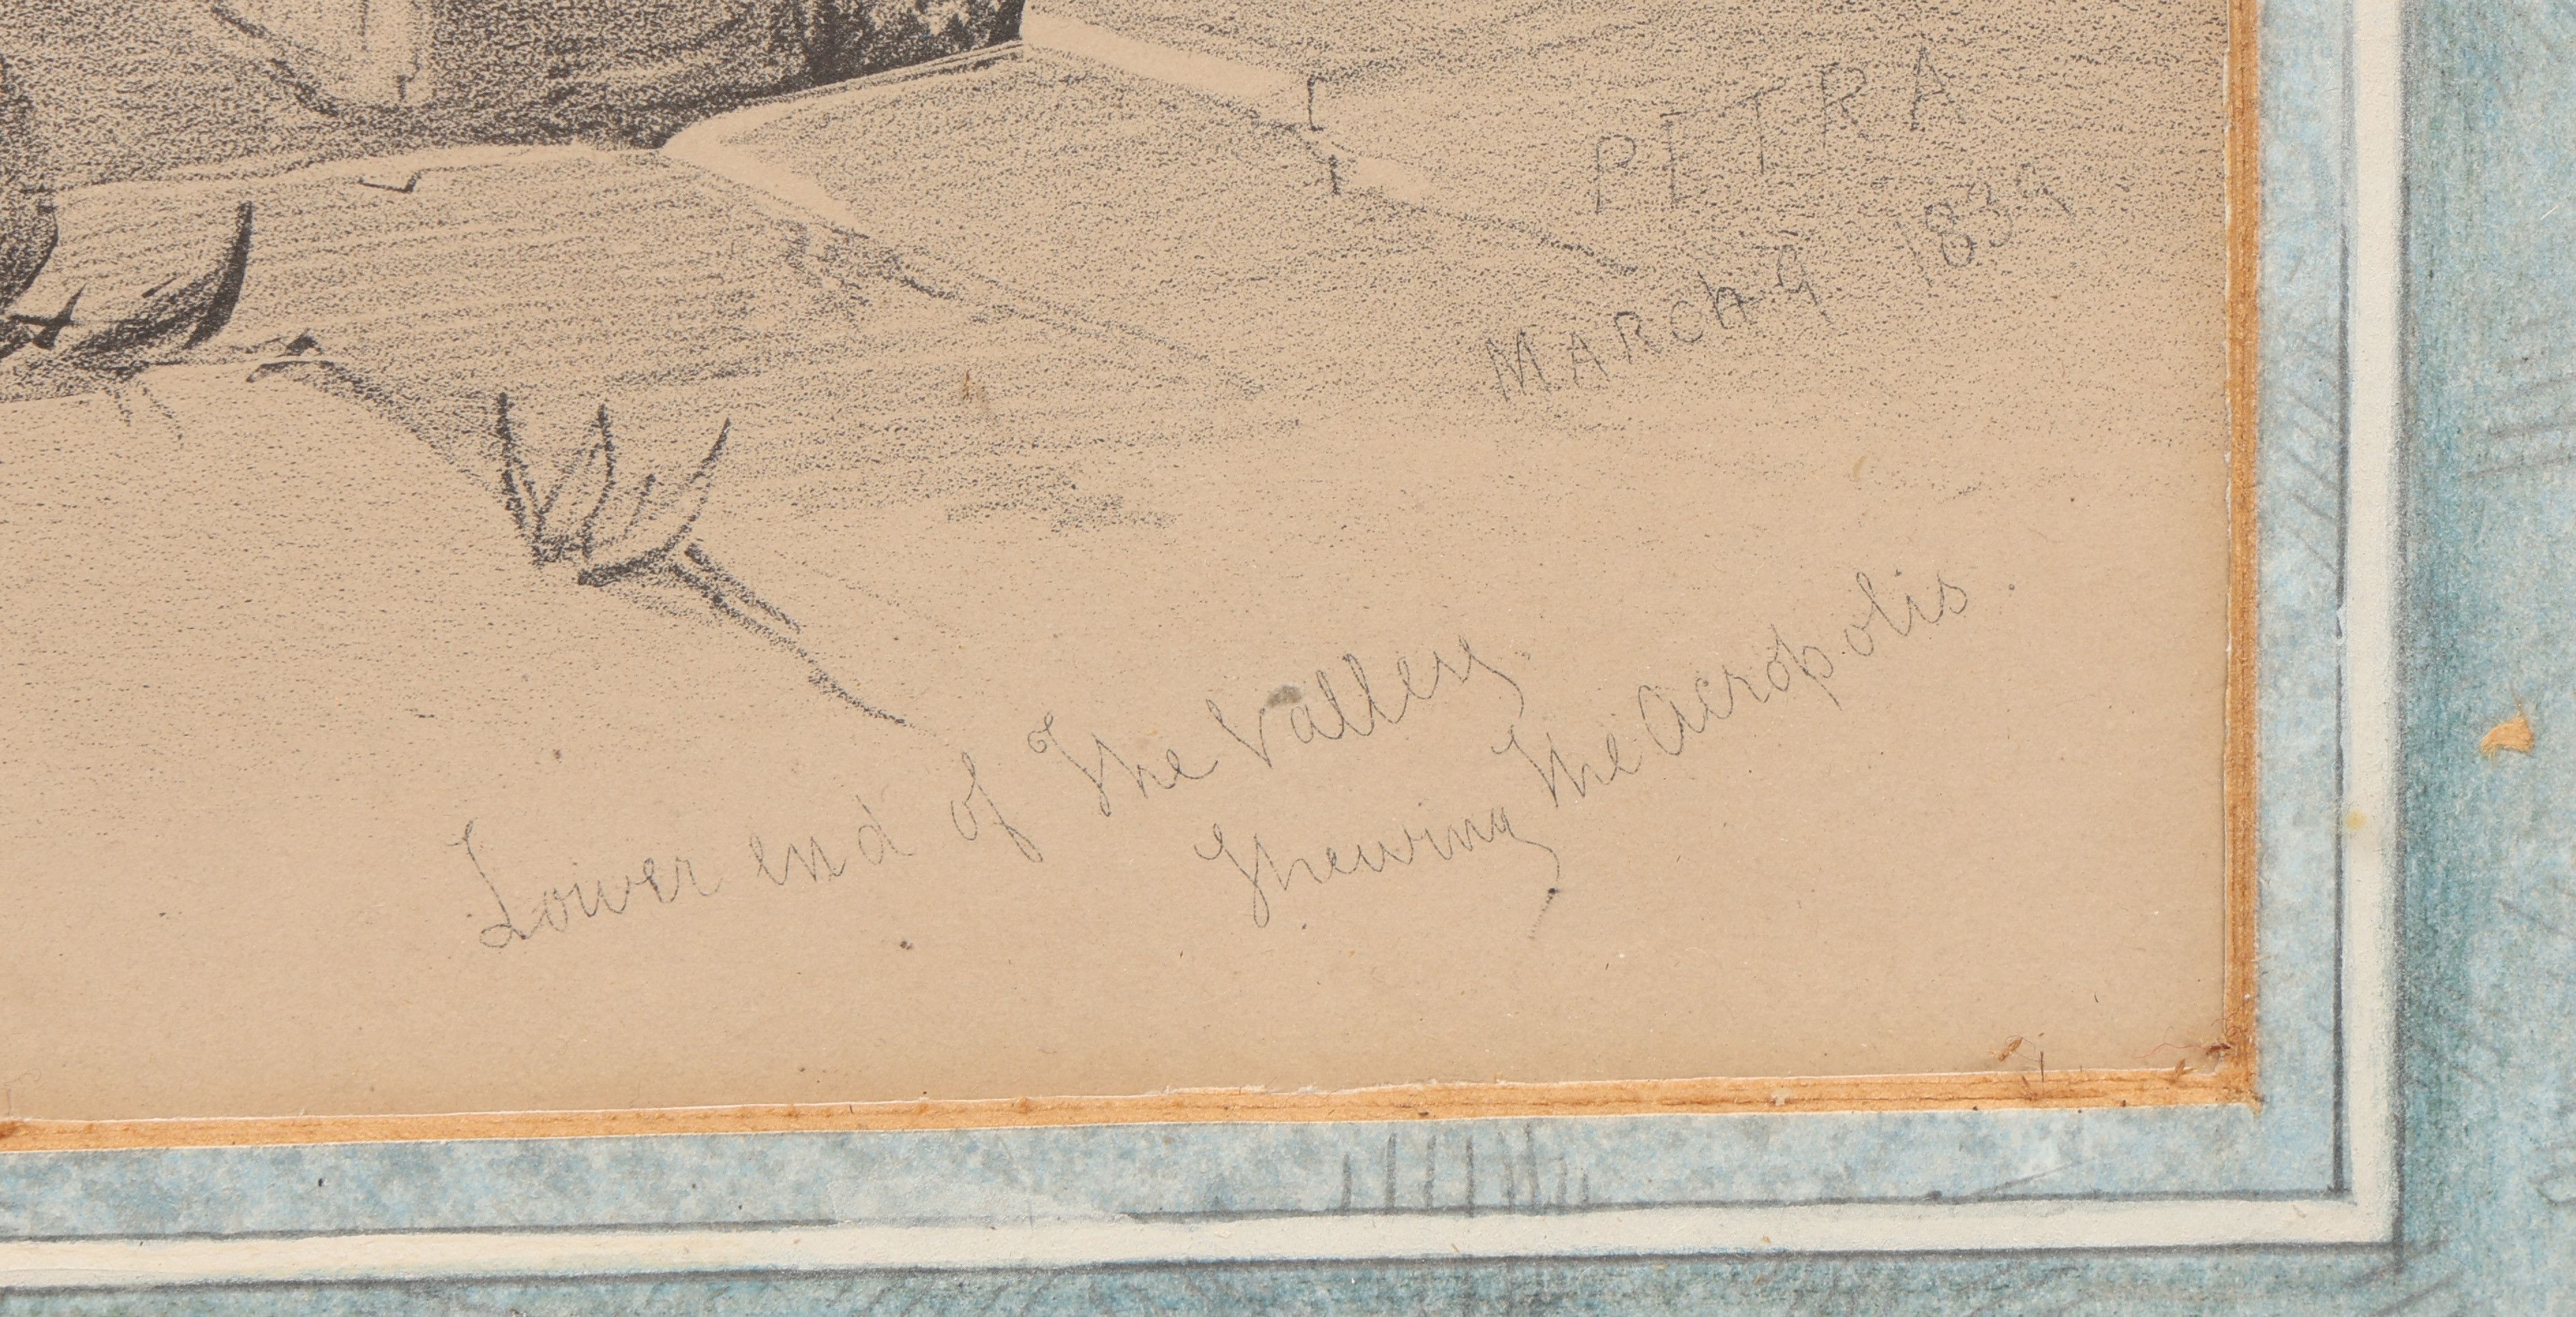 PETRA
MARCH 9 1839
Lower end of The Valley
Shewing The Acropolis.